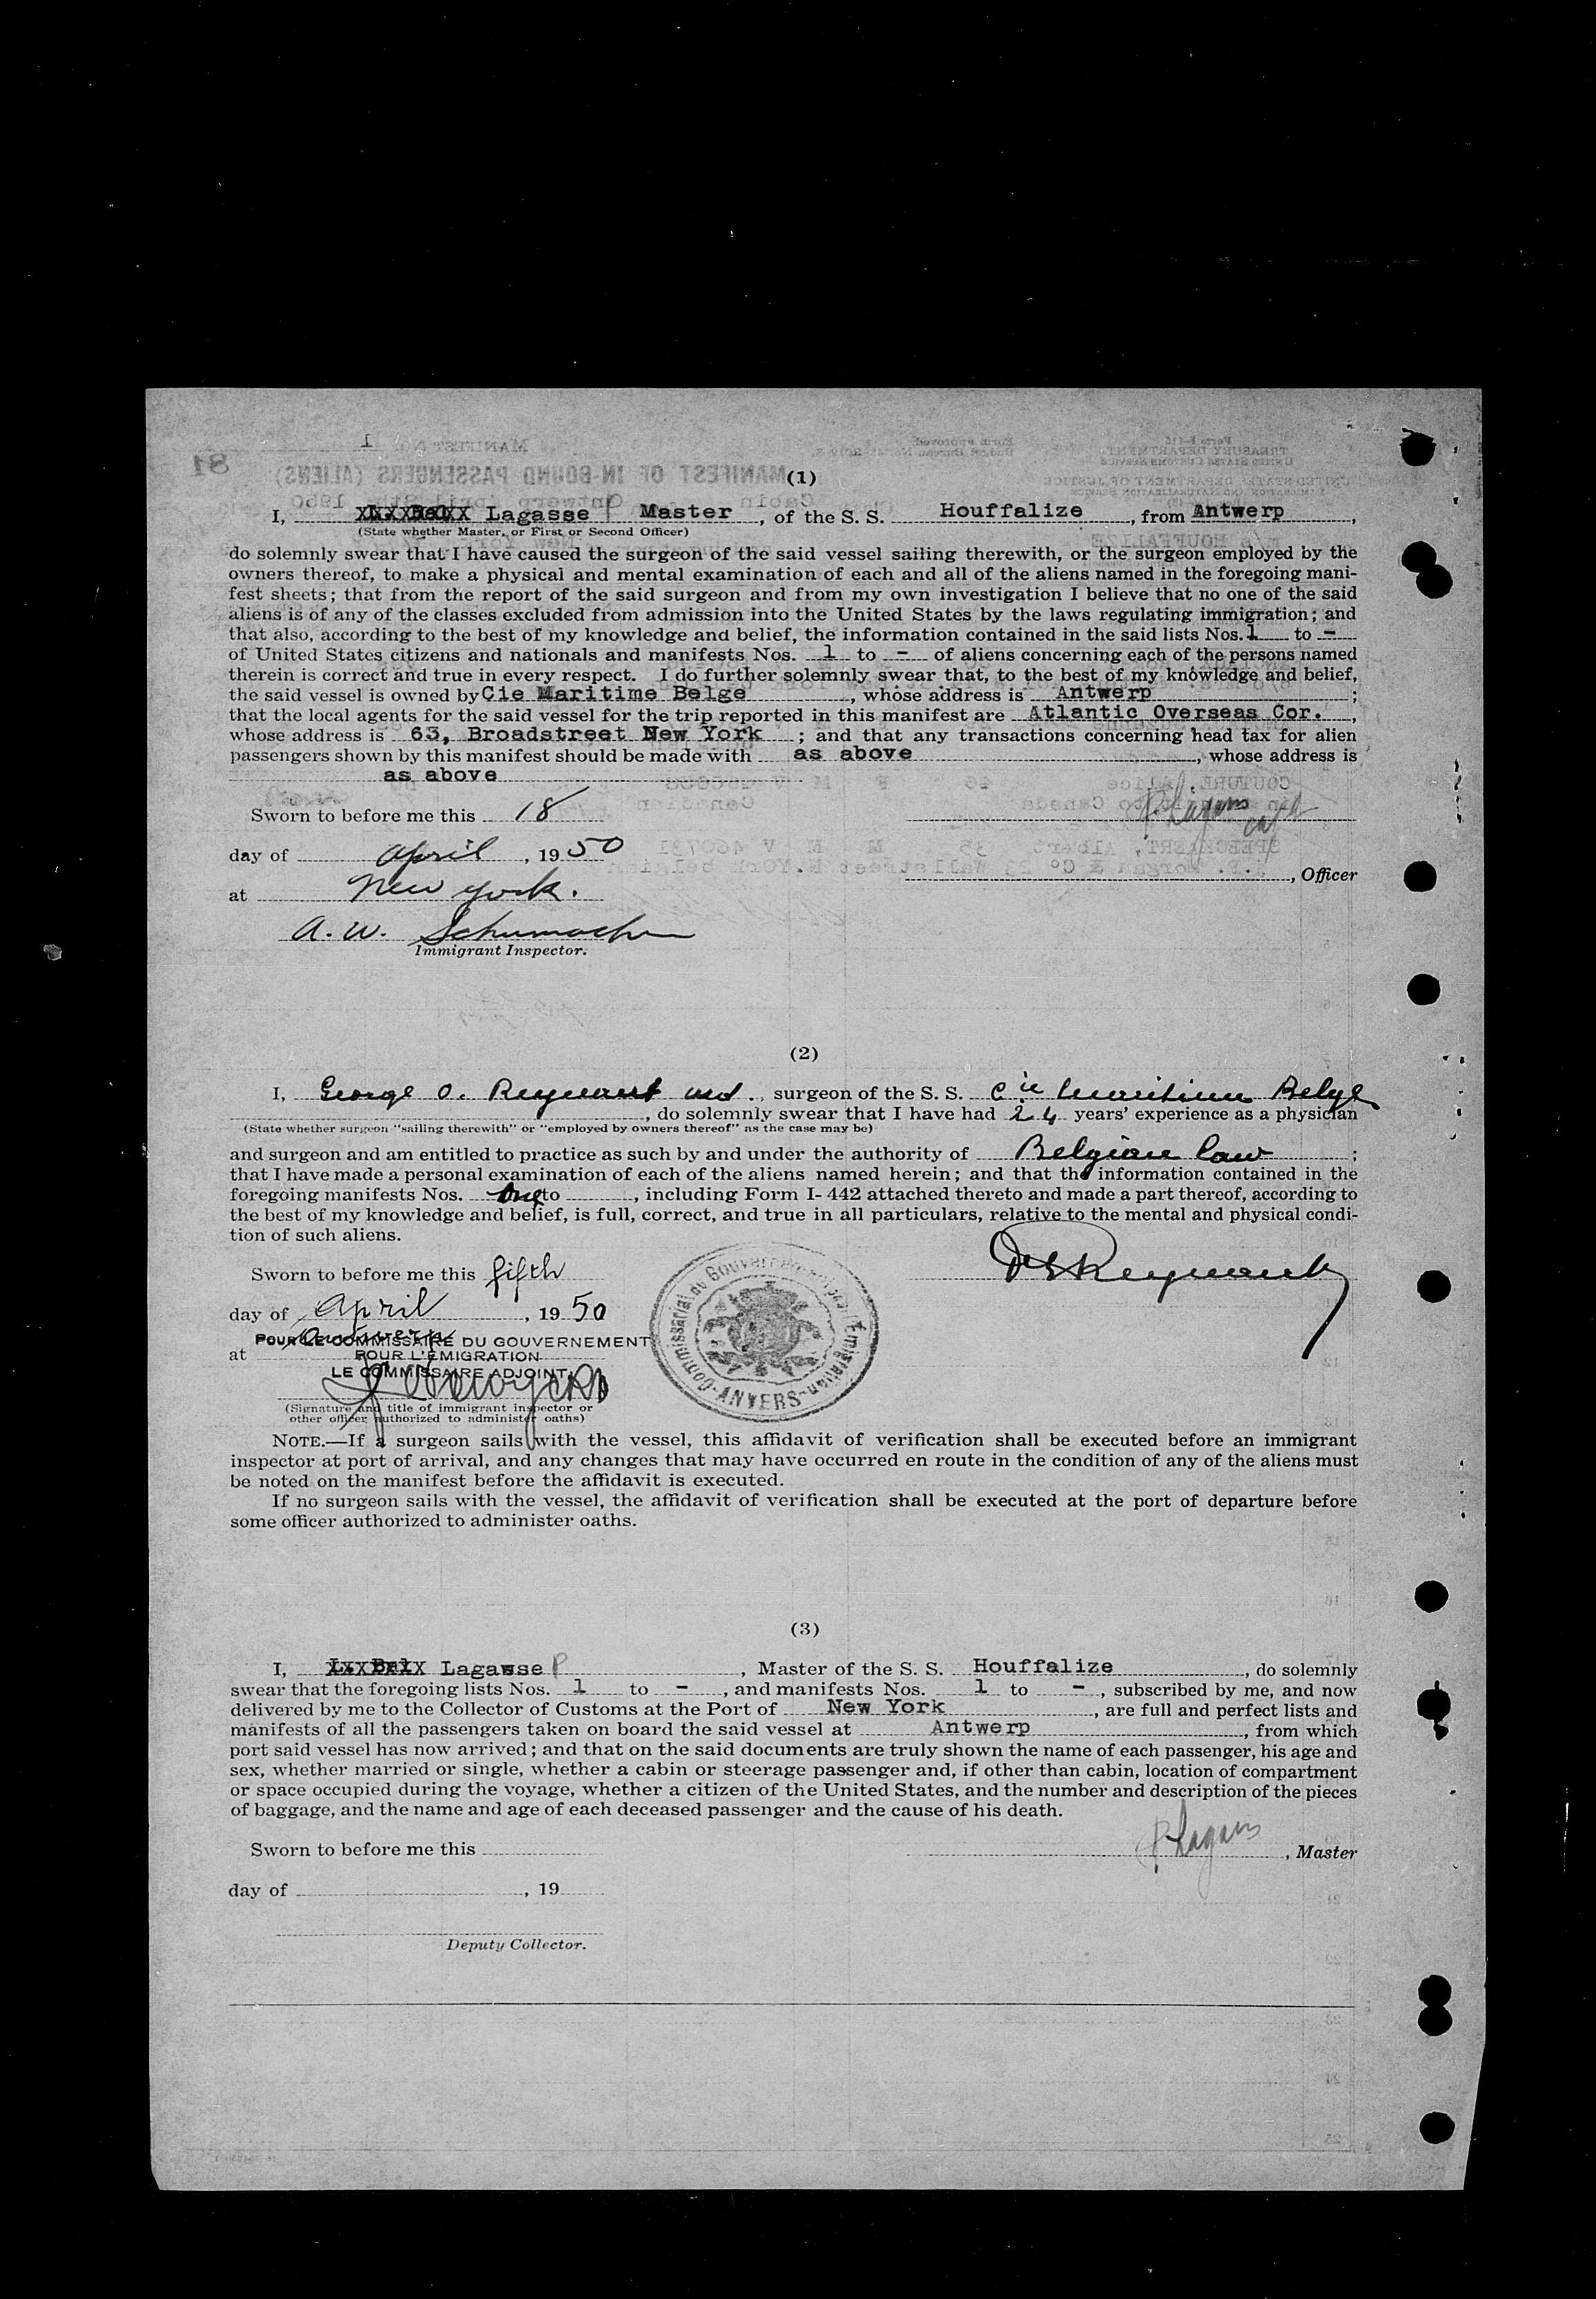 (1)
I, Lagasse P Master, of the S. S. Houffalize, from Antwerp,
(State whether Master, or First or Second Officer)
do solemnly swear that I have caused the surgeon of the said vessel sailing therewith, or the surgeon employed by the
owners thereof, to make a physical and mental examination of each and all of the aliens named in the foregoing mani-
fest sheets; that from the report of the said surgeon and from my own investigation I believe that no one of the said
aliens is of any of the classes excluded from admission into the United States by the laws regulating immigration; and
that also, according to the best of my knowledge and belief, the information contained in the said lists Nos. 1 to -
of United States citizens and nationals and manifests Nos. 1 to - of aliens concerning each of the persons named
therein is correct and true in every respect. I do further solemnly swear that, to the best of my knowledge and belief,
the said vessel is owned by Cie Maritime Belge, whose address is Antwerp;
that the local agents for the said vessel for the trip reported in this manifest are Atlantic Overseas Cor.,
whose address is 63, Broadstreet New York; and that any transactions concerning head tax for alien
passengers shown by this manifest should be made with as above, whose address is
as above
Sworn to before me this 18
day of April, 1950
, Officer
at New York.
A. W. Schumacher
Immigrant Inspector.
(2)
I, George O. Reymant md., surgeon of the S. S. Cie Maritime Belge
, do solemnly swear that I have had 24 years' experience as a physician
(State whether surgeon "sailing therewith" or "employed by owners thereof" as the case may be)
and surgeon and am entitled to practice as such by and under the authority of Belgian law;
that I have made a personal examination of each of the aliens named herein; and that the information contained in the
foregoing manifests Nos. One to , including Form I-442 attached thereto and made a part thereof, according to
the best of my knowledge and belief, is full, correct, and true in all particulars, relative to the mental and physical condi-
tion of such aliens.
Sworn to before me this fifth
day of April, 1950
at Antwerp
POUR LE COMMISSAIRE DU GOUVERNEMENT
POUR L'EMIGRATION
LE COMMISSAIRE ADJOINT,
Commissariat du Gouvernement pour l'Emigration
ANVERS
(Signature and title of immigrant inspector or
other officer authorized to administer oaths)
NOTE.—If a surgeon sails with the vessel, this affidavit of verification shall be executed before an immigrant
inspector at port of arrival, and any changes that may have occurred en route in the condition of any of the aliens must
be noted on the manifest before the affidavit is executed.
If no surgeon sails with the vessel, the affidavit of verification shall be executed at the port of departure before
some officer authorized to administer oaths.
(3)
I, Lagasse P, Master of the S. S. Houffalize, do solemnly
swear that the foregoing lists Nos. 1 to -, and manifests Nos. 1 to -, subscribed by me, and now
delivered by me to the Collector of Customs at the Port of New York, are full and perfect lists and
manifests of all the passengers taken on board the said vessel at Antwerp, from which
port said vessel has now arrived; and that on the said documents are truly shown the name of each passenger, his age and
sex, whether married or single, whether a cabin or steerage passenger and, if other than cabin, location of compartment
or space occupied during the voyage, whether a citizen of the United States, and the number and description of the pieces
of baggage, and the name and age of each deceased passenger and the cause of his death.
Sworn to before me this
, Master
day of , 19
Deputy Collector.